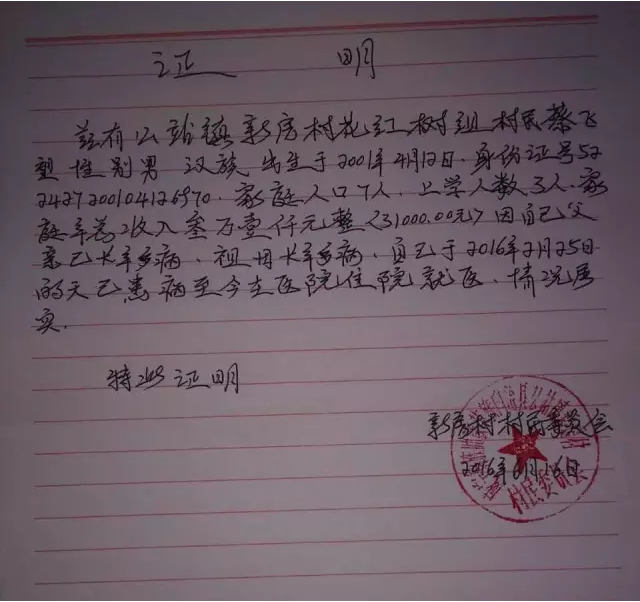 证 明
兹有么站镇新房村花红树组村民蔡飞
型性别男 汉族 出生于2001年4月12日.身份证号52
2427200104126970.家庭人口7人.上学人数3人.家
庭年总收入叁万壹仟元整<31000.00元>因自己父
亲已长年多病.祖母长年多病.自己于2016年2月25日
的天已患病至今在医院住院就医.情况属
实.
特此证明
新房村村民委员会
2016年6月16日
村民委员会